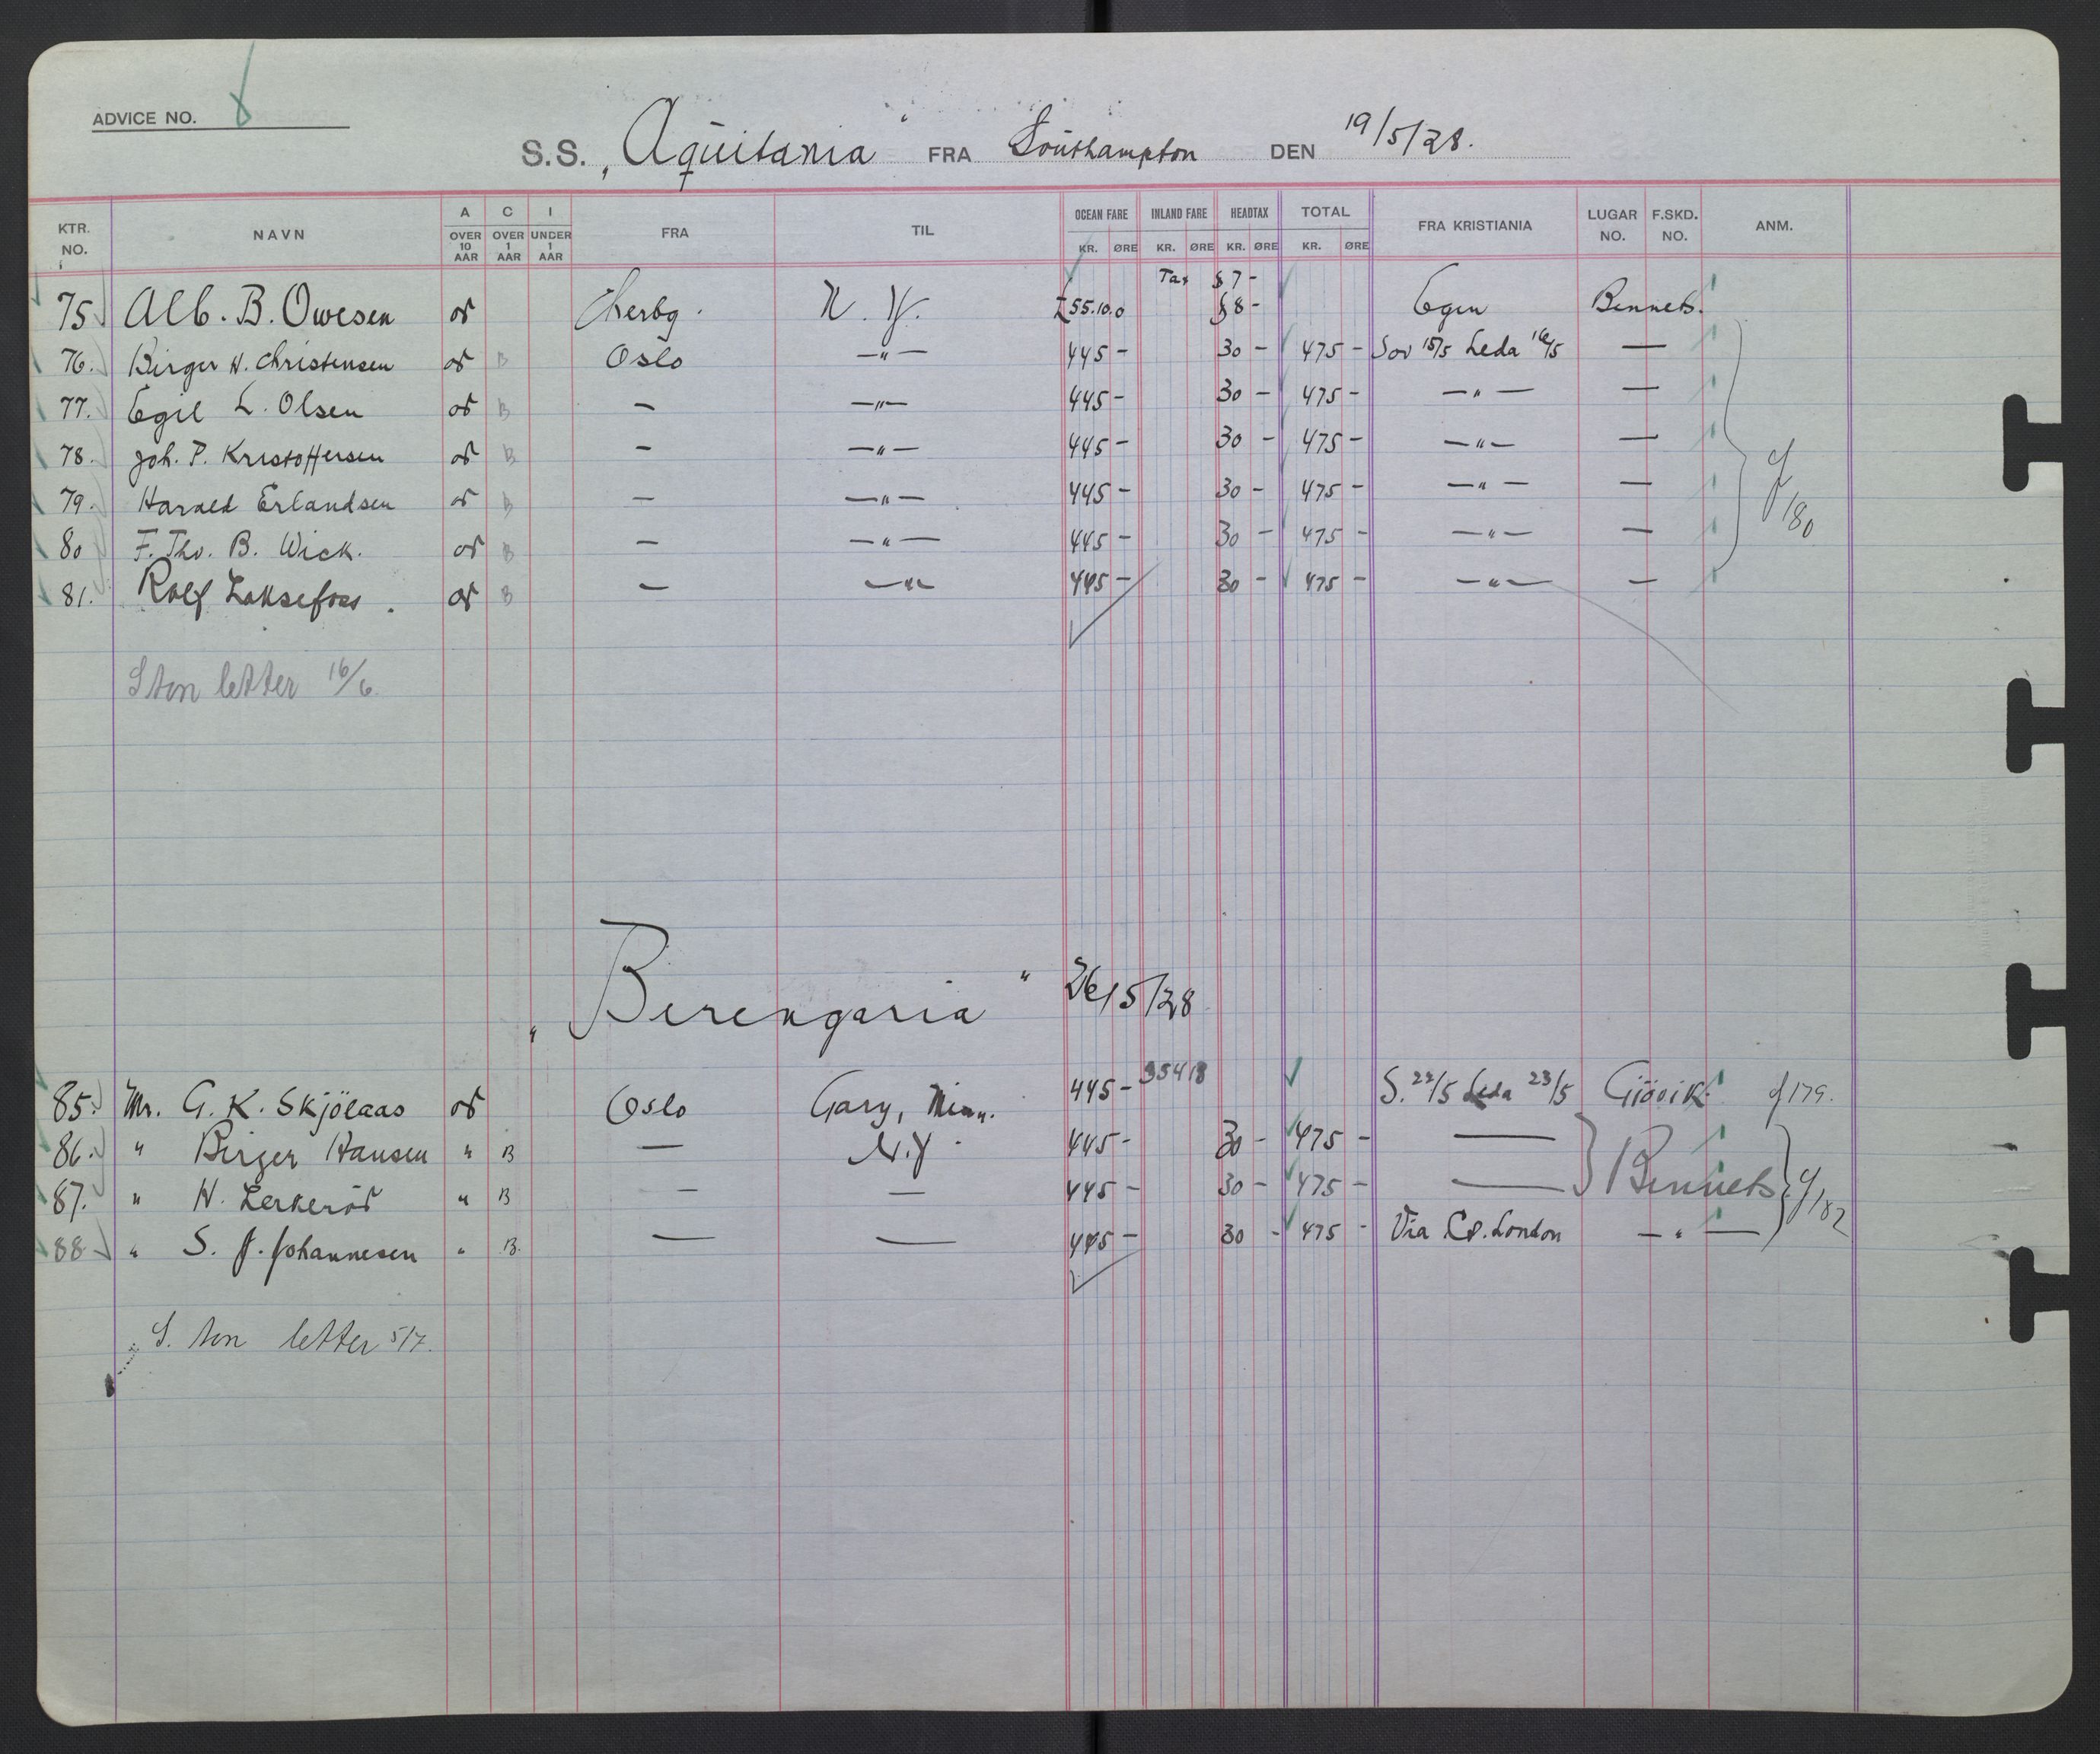 ADVICE NO. 8
S.S. „Aquitania“ FRA Southampton DEN 19/5/28.
KTR. NO. NAVN A OVER 10 AAR C OVER 1 AAR I UNDER 1 AAR FRA TIL OCEAN FARE KR. ØRE INLAND FARE KR. ØRE HEADTAX KR. ØRE TOTAL KR. ØRE FRA KRISTIANIA LUGAR NO. F.SKD. NO. ANM.
Tax $ 7 -
75 Alb. B. Owesen Cherbg. N.Y. £55.10.0 $ 8 - Egen Bennets.
76. Birger H. Christensen B Oslo -„- 445 - 30 - 475 - 15/5 Leda 16/5 —
77. Egil L. Olsen B - -„- 445 - 30 - 475 - -„- —
78. Joh. P. Kristoffersen B - -„- 445 - 30 - 475 - -„- —
79. Harald Erlandsen B - -„- 445 - 30 - 475 - -„- —
80 F. Thv. B. Wick. B - -„- 445 - 30 - 475 - -„- —
/180
81. Rolf Laksefoss. B - -„- 445 - 30 - 475 - -„- —
S ton letter 16/6.
„Berengaria“ 26/5/28
85. Mr. G. K. Skjölaas Oslo Gary, Minn. 445 - 35418 S. 22/5 Leda 23/5 Gjövik 179.
86. " Birger Hansen " B — N.Y. 445 - 30 - 475 - —
87. " H. Lerkeröd " B - — 445 - 30 - 475 - — Bennets /182
88 " S. J. Johannesen " B. — — 445 - 30 - 475 - Via London -„-
S. ton letter 5/7.